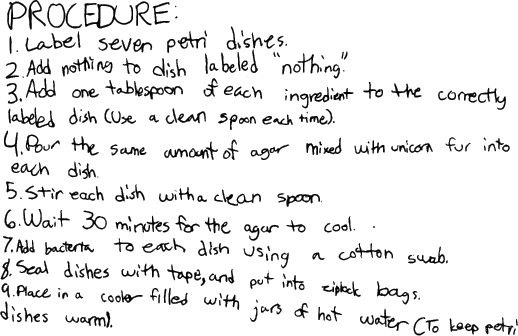 PROCEDURE:
1. Label seven petri dishes.
2. Add nothing to dish labeled "nothing."
3. Add one tablespoon of each ingredient to the correctly
labeled dish (Use a clean spoon each time).
4. Pour the same amount of agar mixed with unicorn fur into
each dish.
5. Stir each dish with a clean spoon.
6. Wait 30 minutes for the agar to cool.
7. Add bacteria to each dish using a cotton swab.
8. Seal dishes with tape, and put into ziplock bags.
9. Place in a cooler filled with jars of hot water (To keep petri
dishes warm).